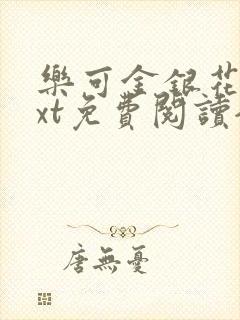 樂可金銀花
xt免費閱讀
唐無憂